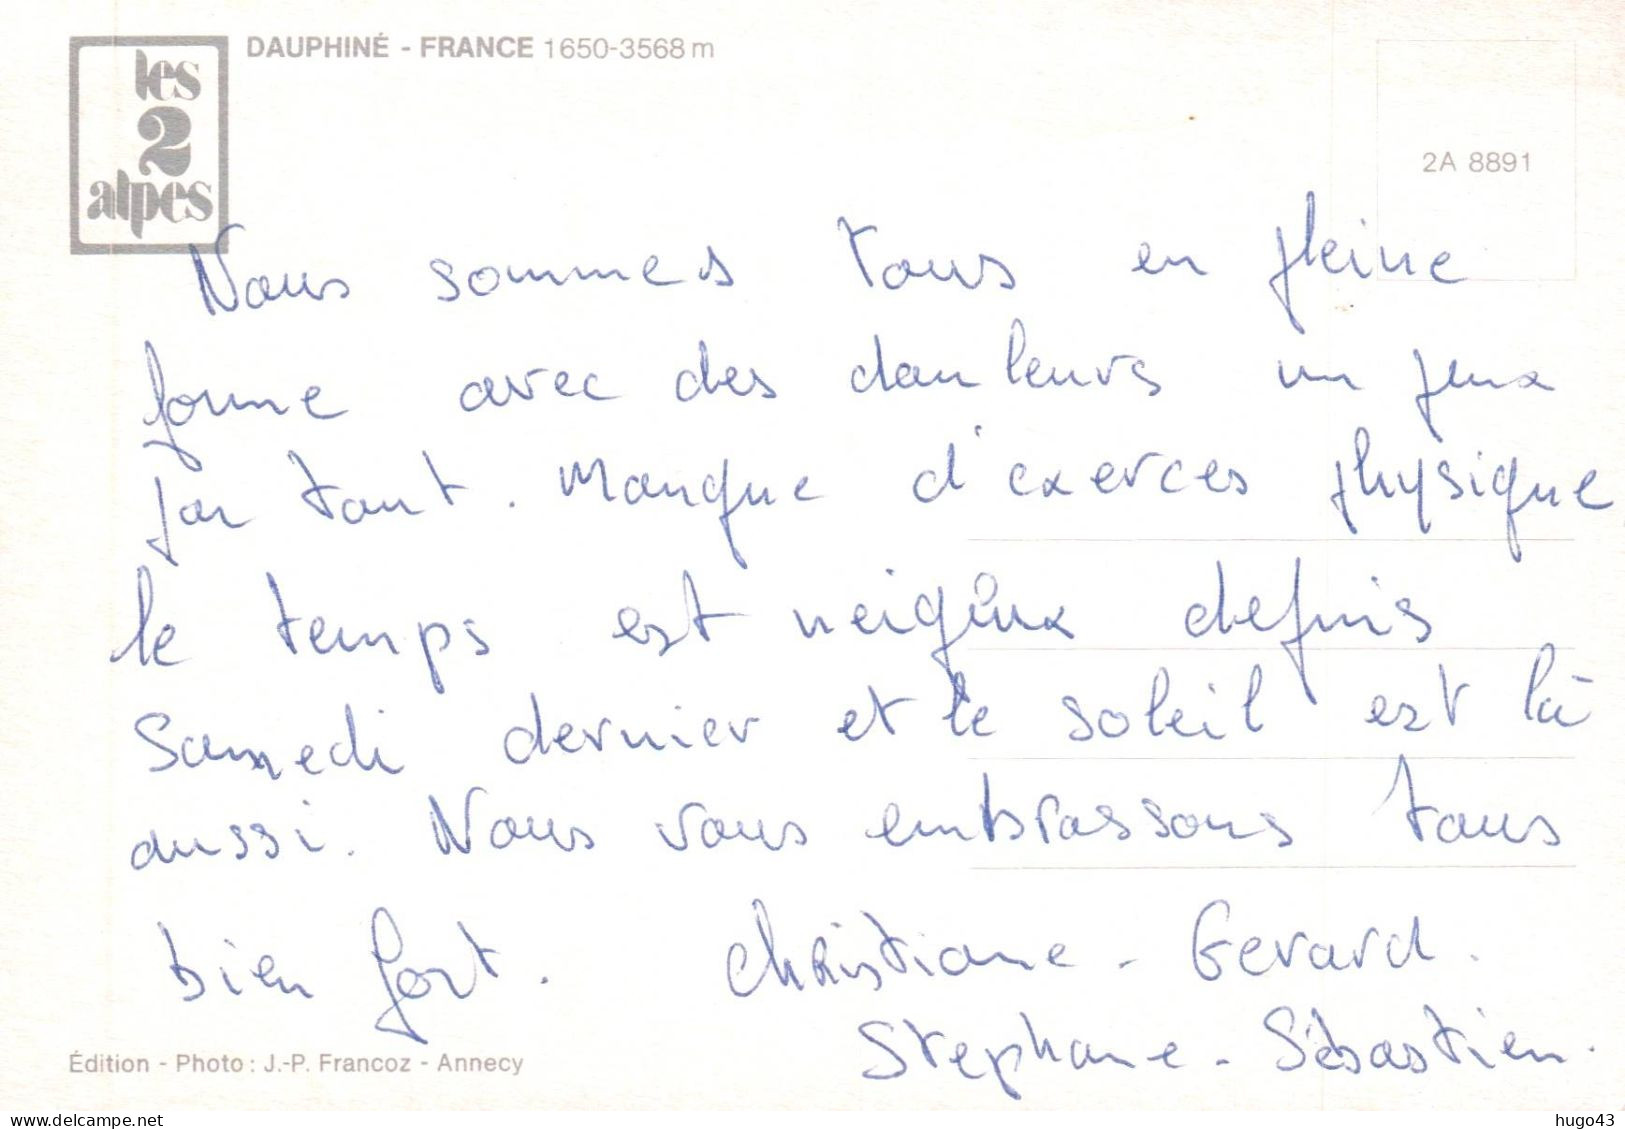 les
2
alpes
DAUPHINÉ - FRANCE 1650-3568 m
2A 8891
Nous sommes tous en pleine
forme avec des douleurs un peux
par tout. Manque d'exerces physique
le temps est neigeux depuis
Samedi dernier et le soleil est là
aussi. Nous vous embrassons tous
bien fort. Christiane - Gerard.
Stephane - Sébastien.
Édition - Photo : J.-P. Francoz - Annecy
delcampe.net
hugo43